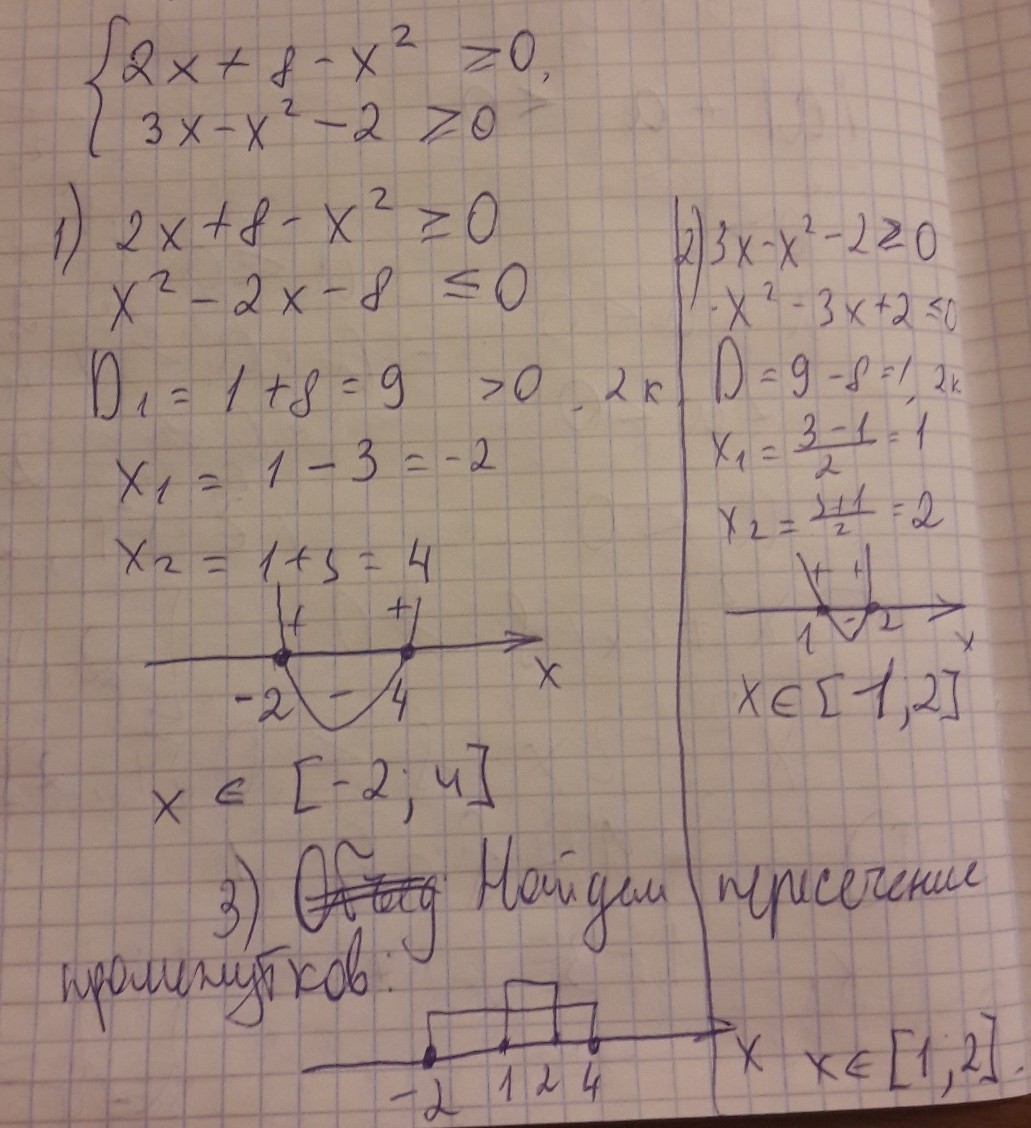 { 2x + 8 - x² ≥ 0,
3x - x² - 2 ≥ 0
1) 2x + 8 - x² ≥ 0
x² - 2x - 8 ≤ 0
D₁ = 1 + 8 = 9 > 0, 2к
x₁ = 1 - 3 = -2
x₂ = 1 + 3 = 4
+ +
-2 - 4 x
x ∈ [-2; 4]
2) 3x - x² - 2 ≥ 0
x² - 3x + 2 ≤ 0
D = 9 - 8 = 1, 2к
x₁ = (3 - 1)/2 = 1
x₂ = (3 + 1)/2 = 2
+ +
1 - 2 x
x ∈ [1; 2]
3) Найдем пересечение
промежутков:
-2 1 2 4 x x ∈ [1; 2].